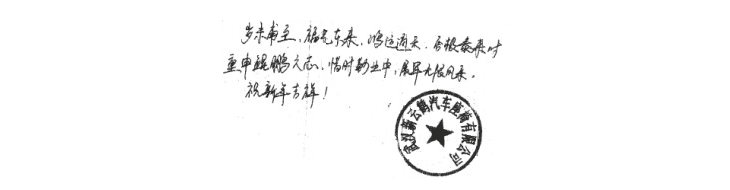 岁末甫至，福气东来，鸿运通天，否极泰来时
重申鲲鹏之志，惜时勤业中，展军大依风采。
祝新年吉祥！
武汉新云鹤汽车座椅有限公司